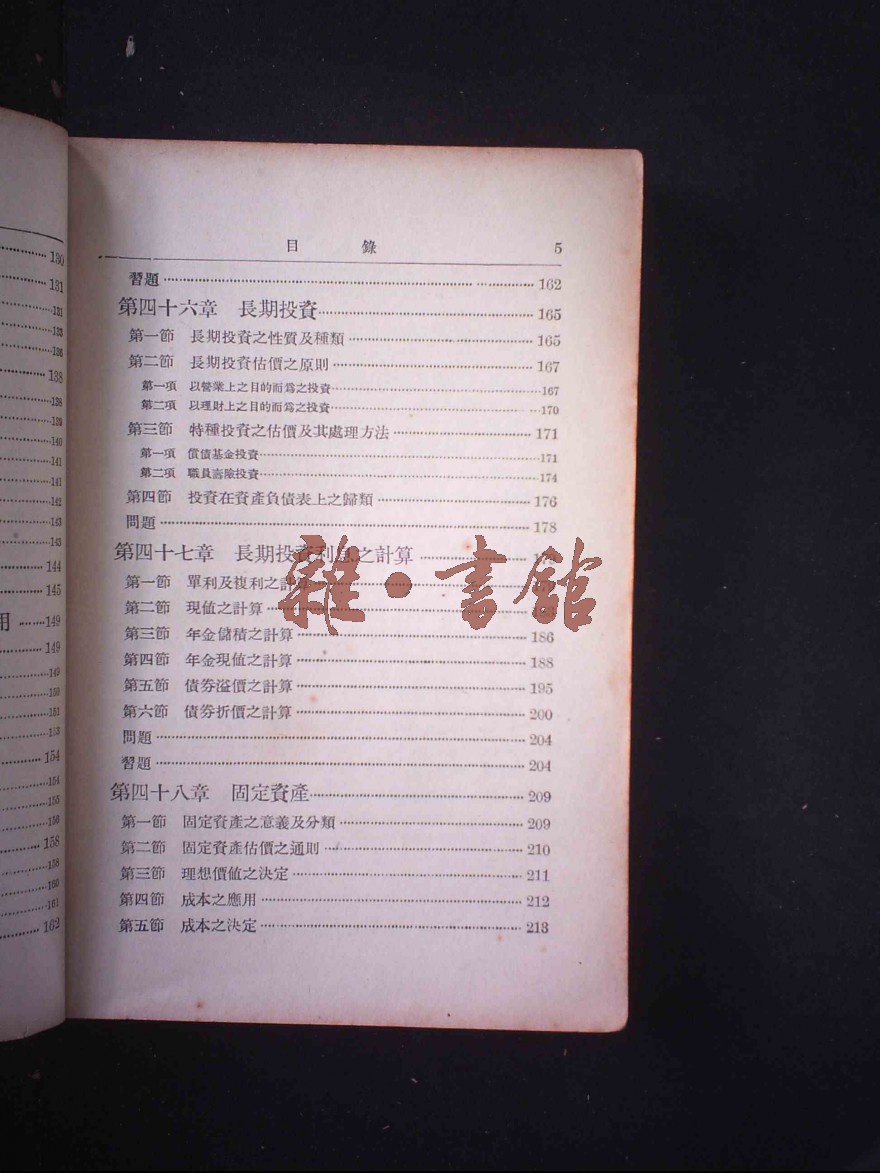 130
131
131
133
136
138
138
139
140
141
141
142
143
143
144
145
用 149
149
149
150
151
153
154
154
155
156
158
158
160
161
162
目 錄 5
習題 162
第四十六章 長期投資 165
第一節 長期投資之性質及種類 165
第二節 長期投資估價之原則 167
第一項 以營業上之目的而爲之投資 167
第二項 以理財上之目的而爲之投資 170
第三節 特種投資之估價及其處理方法 171
第一項 償債基金投資 171
第二項 職員壽險投資 174
第四節 投資在資產負債表上之歸類 176
問題 178
第四十七章 長期投資利息之計算
第一節 單利及複利之計算
第二節 現値之計算
第三節 年金儲積之計算 186
第四節 年金現値之計算 188
第五節 債券溢價之計算 195
第六節 債券折價之計算 200
問題 204
習題 204
第四十八章 固定資產 209
第一節 固定資產之意義及分類 209
第二節 固定資產估價之通則 210
第三節 理想價値之決定 211
第四節 成本之應用 212
第五節 成本之決定 213
雜·書館